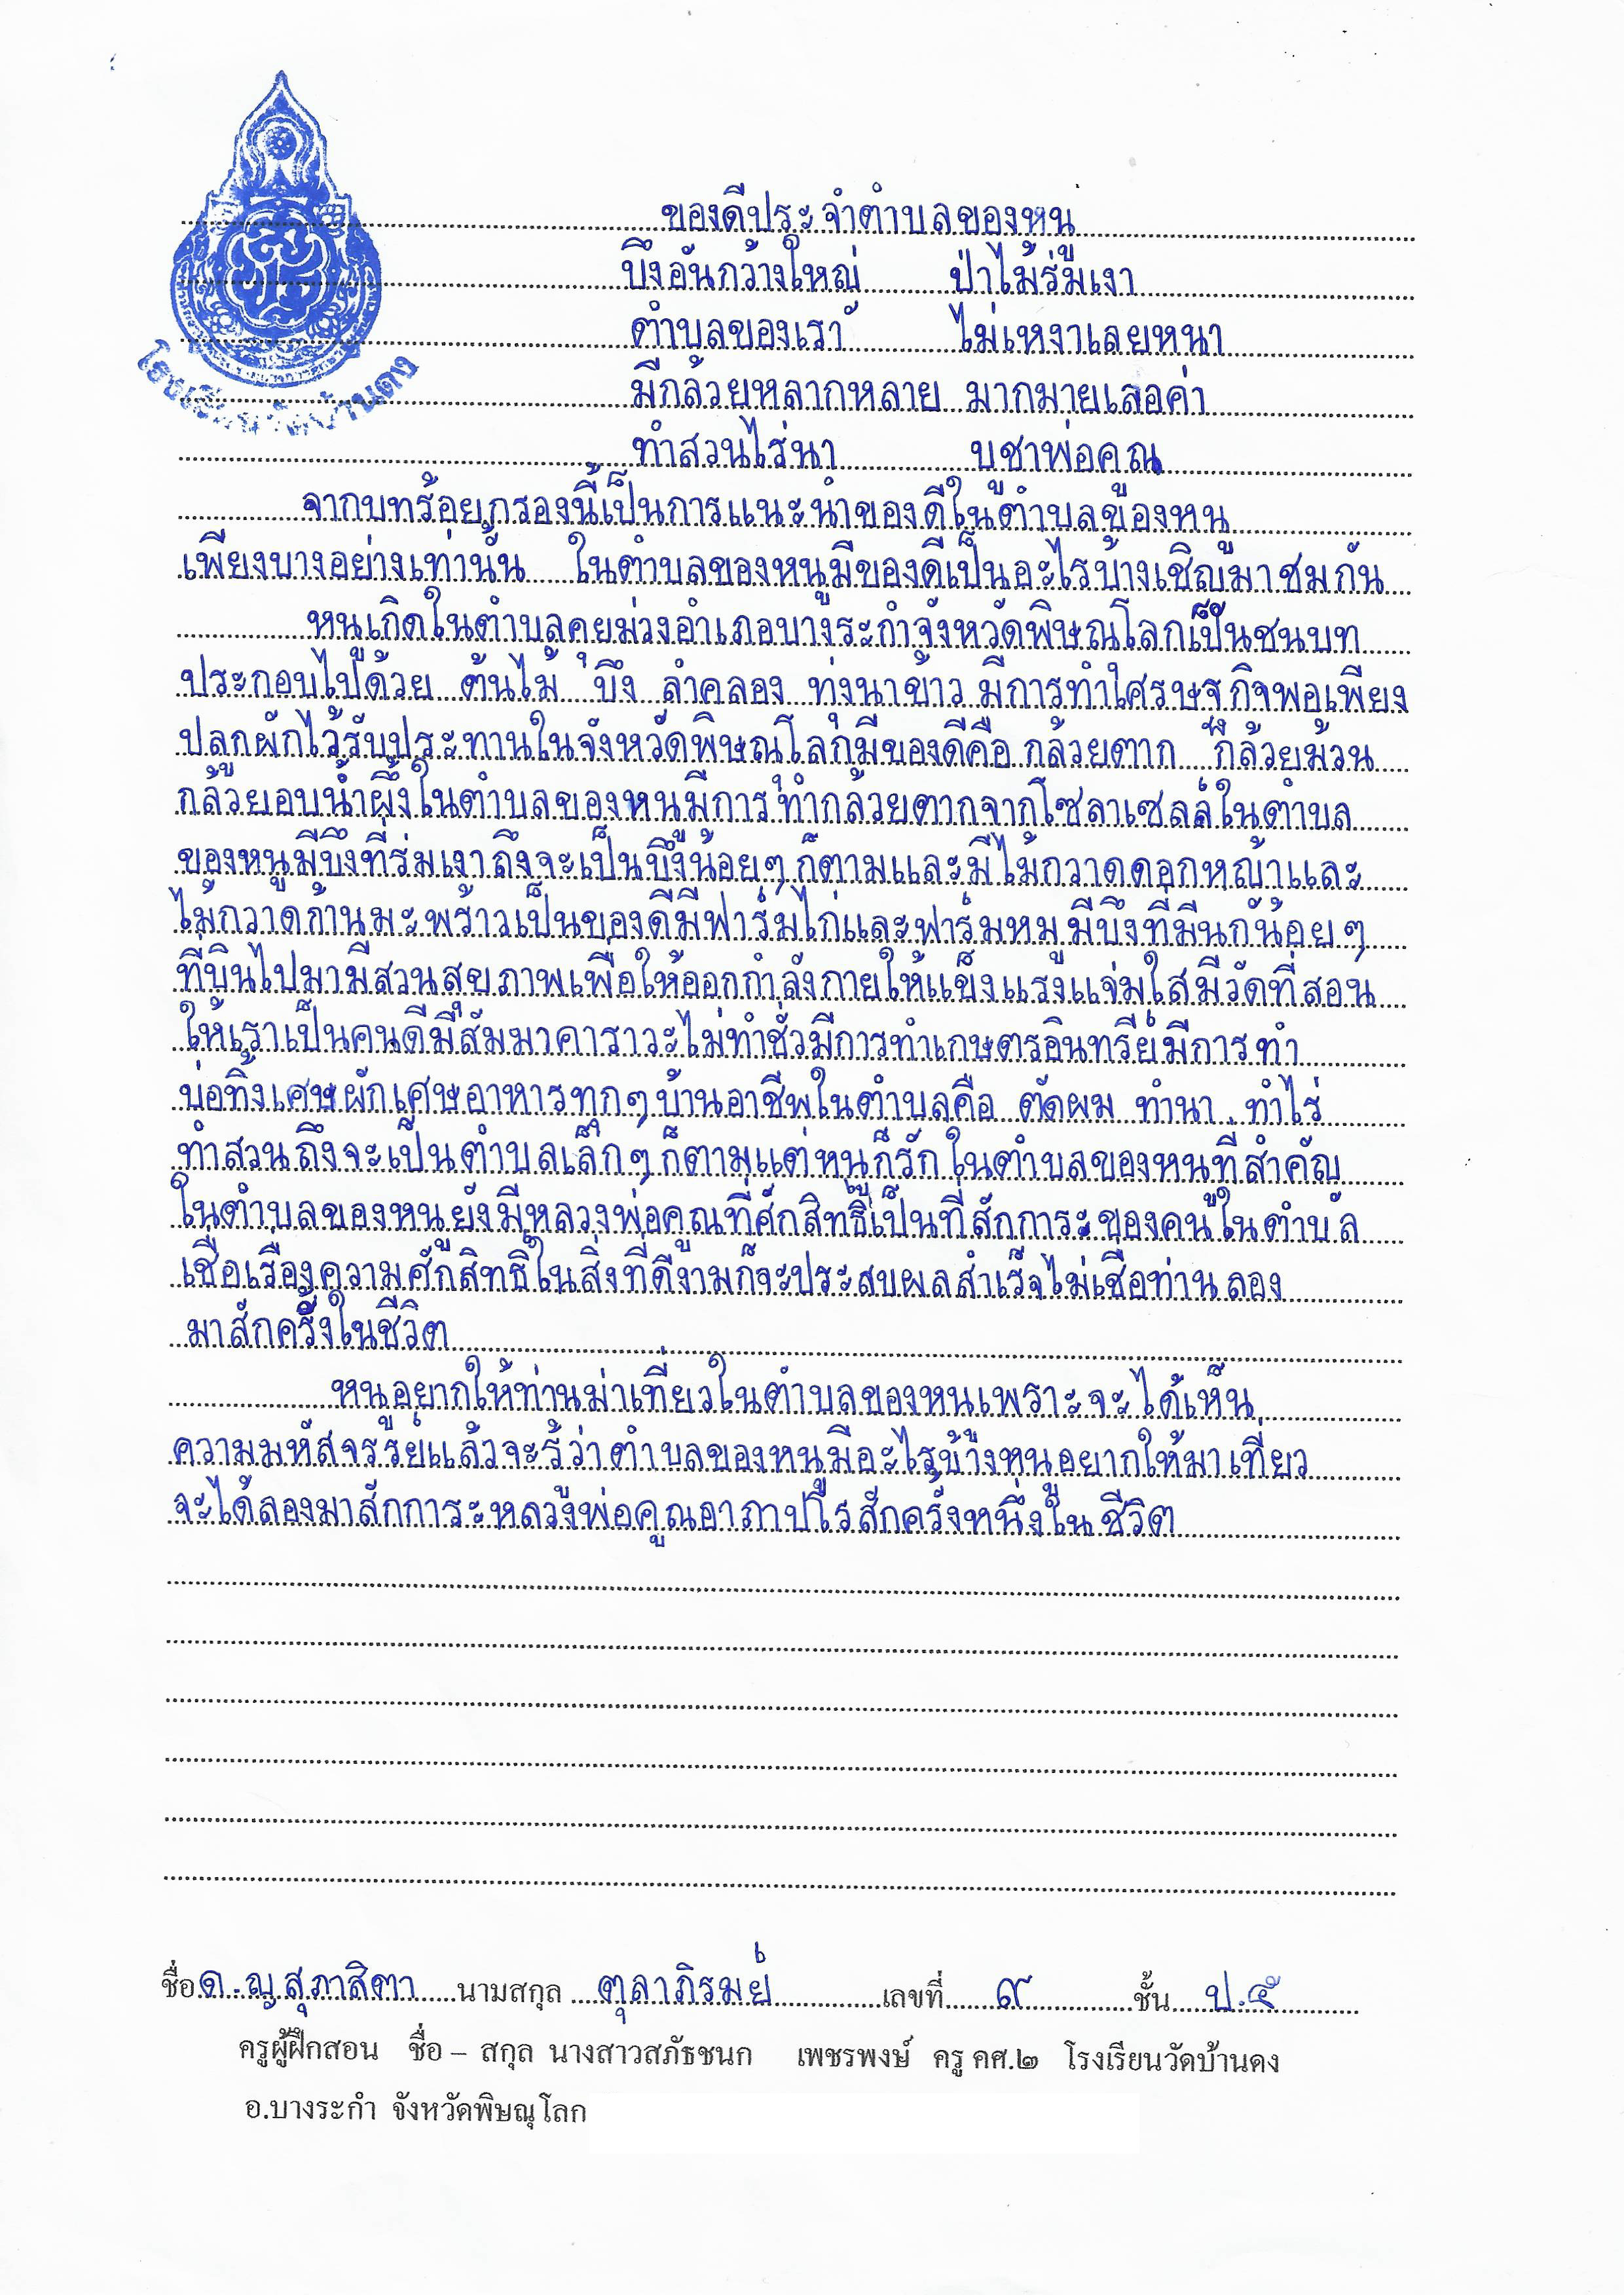 ของดีประจำตำบลของหนู
บึงอันกว้างใหญ่ ป่าไม้ร่มเงา
ตำบลของเรา ไม่เหงาเลยหนา
มีกล้วยหลากหลาย มากมายเลอค่า
ทำสวนไร่นา บูชาพ่อคูณ
จากบทร้อยกรองนี้เป็นการแนะนำของดีในตำบลของหนู
เพียงบางอย่างเท่านั้น ในตำบลของหนูมีของดีเป็นอะไรบ้างเชิญมาชมกัน
หนูเกิดในตำบลคุยม่วงอำเภอบางระกำจังหวัดพิษณุโลกเป็นชนบท
ประกอบไปด้วย ต้นไม้ บึง ลำคลอง ทุ่งนาข้าว มีการทำเศรษฐกิจพอเพียง
ปลูกผักไว้รับประทานในจังหวัดพิษณุโลกมีของดีคือ กล้วยตาก กล้วยม้วน
กล้วยอบน้ำผึ้งในตำบลของหนูมีการทำกล้วยตากจากโซลาเซลล์ในตำบล
ของหนูมีบึงที่ร่มเงาถึงจะเป็นบึงน้อยๆก็ตามและมีไม้กวาดดอกหญ้าและ
ไม้กวาดก้านมะพร้าวเป็นของดีมีฟาร์มไก่และฟาร์มหมูมีบึงที่มีนกน้อยๆ
ที่บินไปมามีสวนสุขภาพเพื่อให้ออกกำลังกายให้แข็งแรงแจ่มใสมีวัดที่สอน
ให้เราเป็นคนดีมีสัมมาคาราวะไม่ทำชั่วมีการทำเกษตรอินทรีย์มีการทำ
บ่อทิ้งเศษผักเศษอาหารทุกๆบ้านอาชีพในตำบลคือ ตัดผม ทำนา ทำไร่
ทำสวนถึงจะเป็นตำบลเล็กๆก็ตามแต่หนูก็รักในตำบลของหนูที่สำคัญ
ในตำบลของหนูยังมีหลวงพ่อคูณที่ศักสิทธิ์เป็นที่สักการะของคนในตำบล
เชื่อเรื่องความศักสิทธิ์ในสิ่งที่ดีงามก็จะประสบผลสำเร็จไม่เชื่อท่านลอง
มาสักครั้งในชีวิต
หนูอยากให้ท่านมาเที่ยวในตำบลของหนูเพราะจะได้เห็น
ความมหัสจรรย์แล้วจะรู้ว่าตำบลของหนูมีอะไรบ้างหนูอยากให้มาเที่ยว
จะได้ลองมาสักการะหลวงพ่อคูณอาภาปโรสักครั้งหนึ่งในชีวิต
ชื่อ ด.ญ สุภาสิตา นามสกุล ตุลาภิรมย์ เลขที่ ๙ ชั้น ป.๕
ครูผู้ฝึกสอน ชื่อ – สกุล นางสาวสภัธชนก เพชรพงษ์ ครู คศ.๒ โรงเรียนวัดบ้านดง
อ.บางระกำ จังหวัดพิษณุโลก